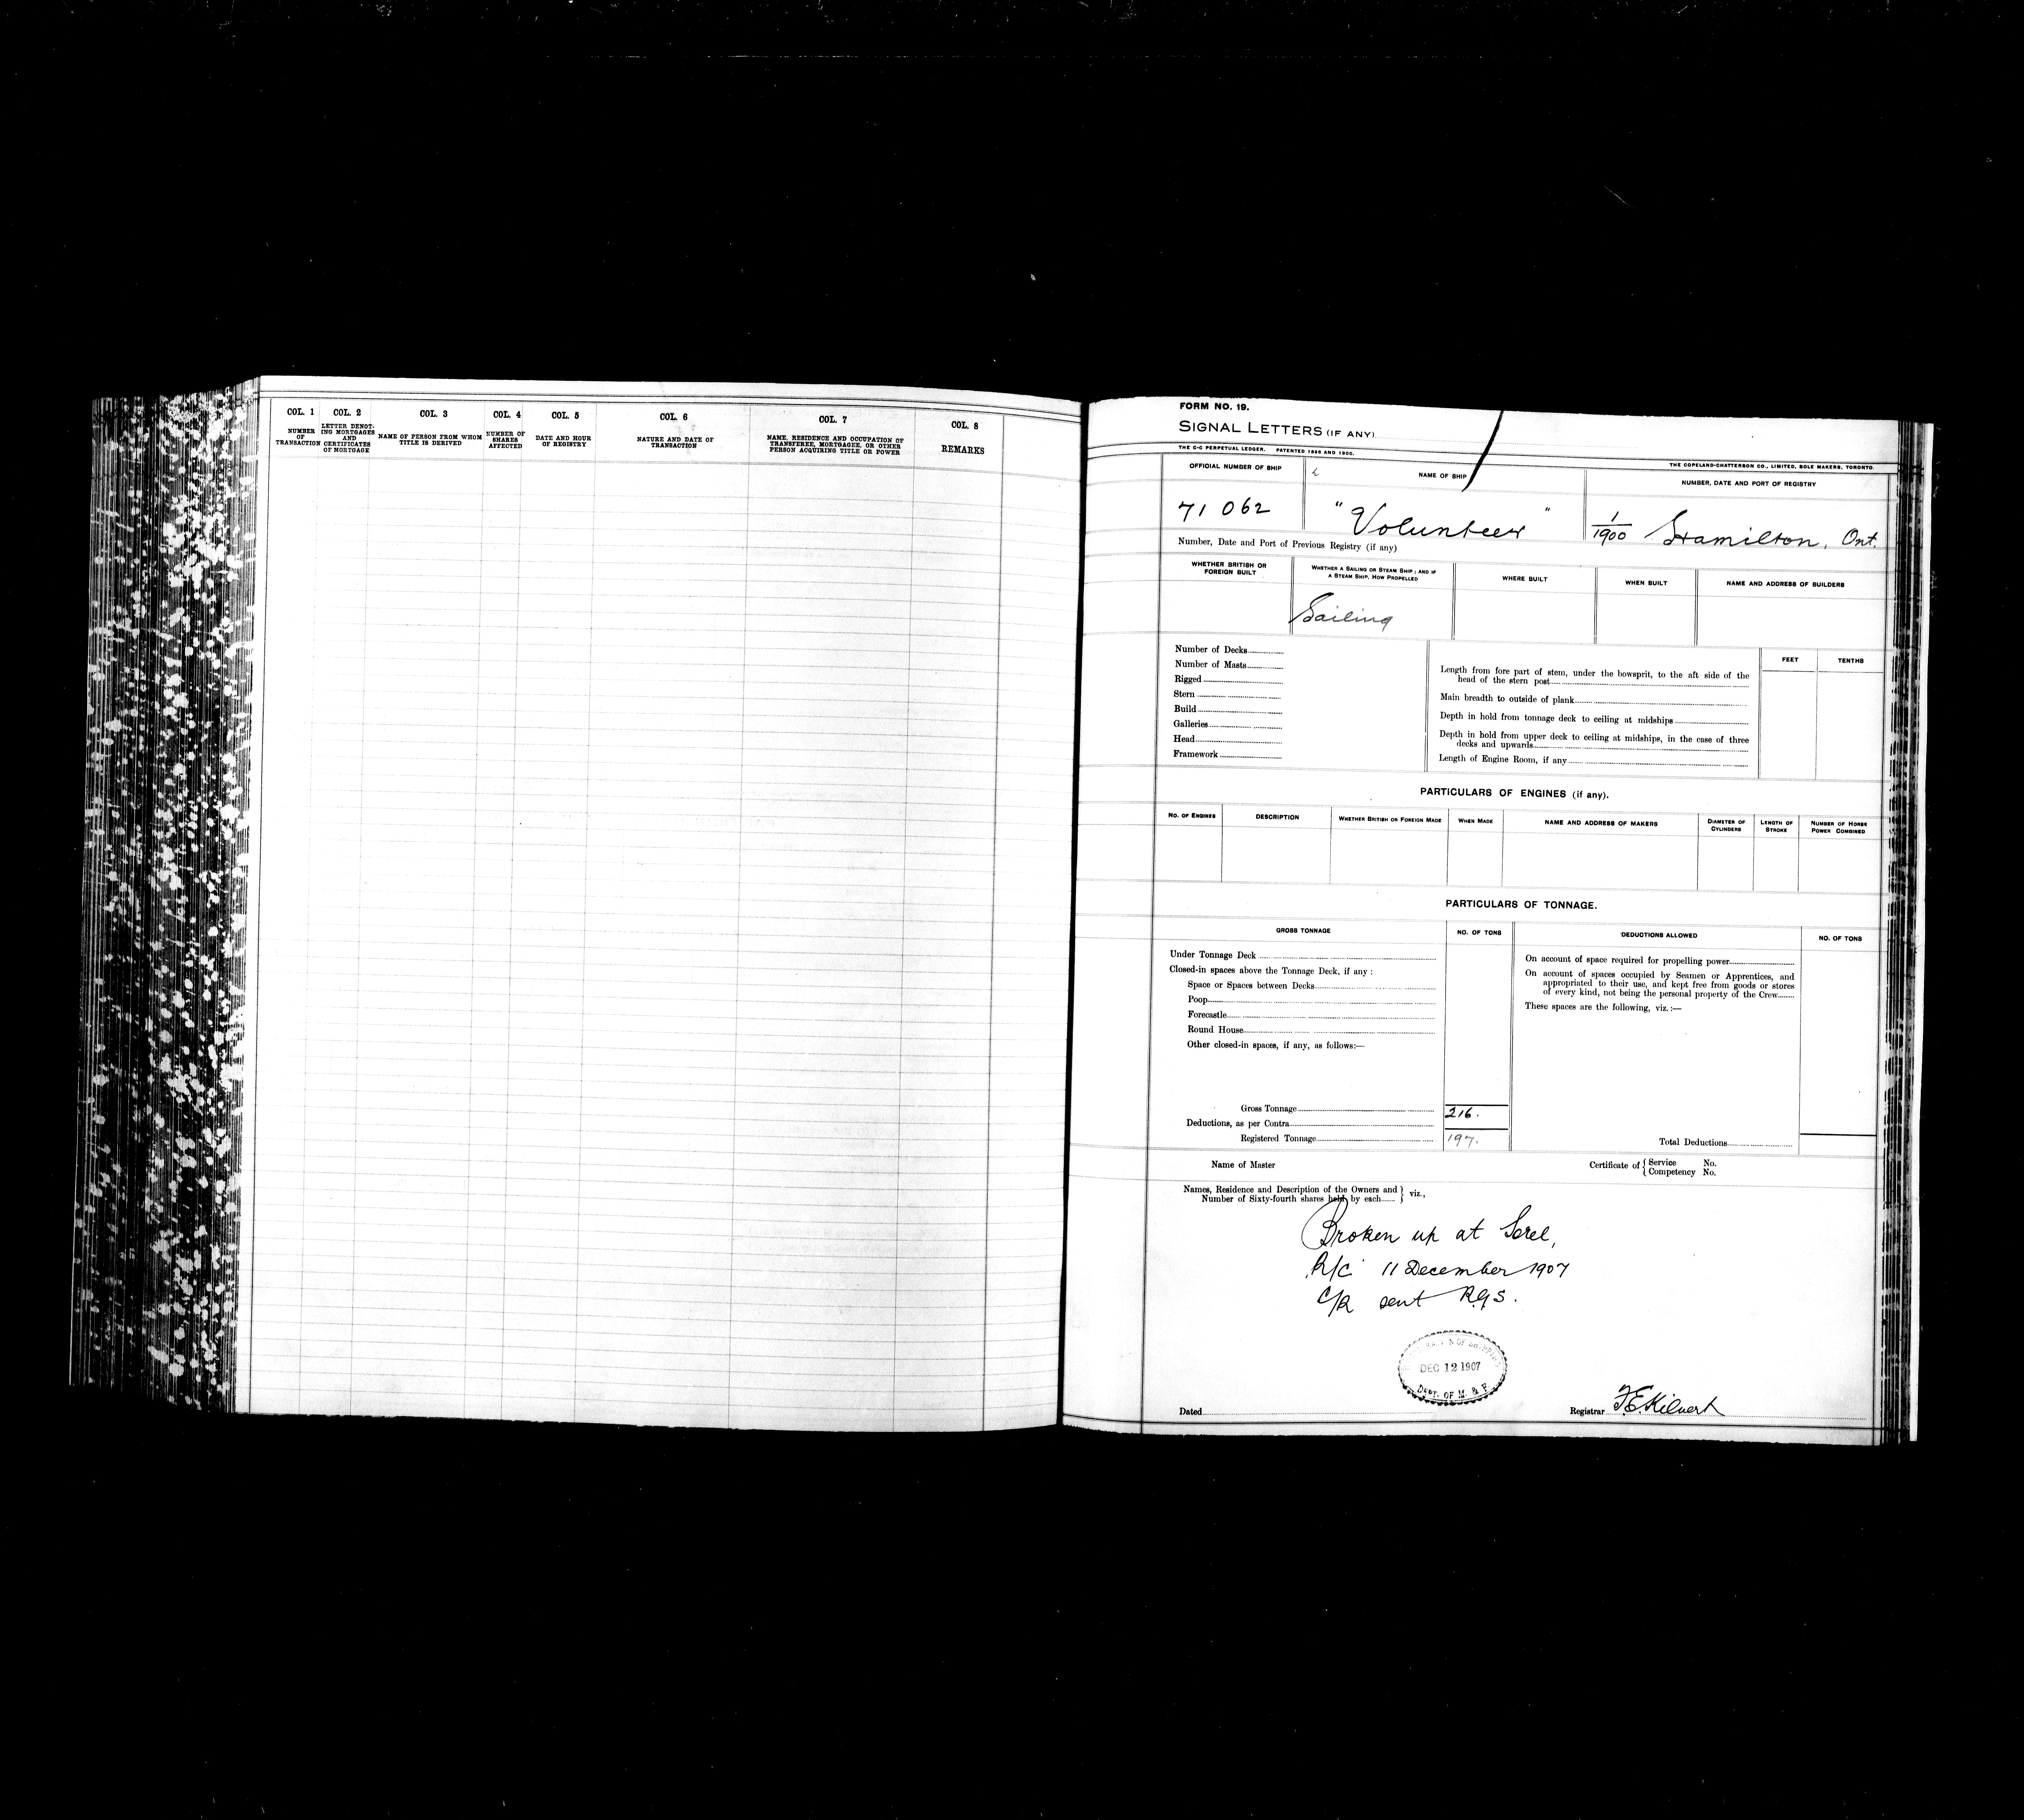 COL. 1
NUMBER
OF
TRANSACTION
COL. 2
LETTER DENOT-
ING MORTGAGES
AND
CERTIFICATES
OF MORTGAGE
COL. 3
NAME OF PERSON FROM WHOM
TITLE IS DERIVED
COL. 4
NUMBER OF
SHARES
AFFECTED
COL. 5
DATE AND HOUR
OF REGISTRY
COL. 6
NATURE AND DATE OF
TRANSACTION
COL. 7
NAME, RESIDENCE AND OCCUPATION OF
TRANSFEREE, MORTGAGEE, OR OTHER
PERSON ACQUIRING TITLE OR POWER
COL. 8
REMARKS
FORM NO. 19.
SIGNAL LETTERS (IF ANY)
THE C-C PERPETUAL LEDGER. PATENTED 1896 AND 1900.
THE COPELAND-CHATTERSON CO., LIMITED, SOLE MAKERS, TORONTO.
OFFICIAL NUMBER OF SHIP
71 062
NAME OF SHIP
"Volunteer"
NUMBER, DATE AND PORT OF REGISTRY
1/1900 Hamilton, Ont.
Number, Date and Port of Previous Registry (if any)
WHETHER BRITISH OR
FOREIGN BUILT
WHETHER A SAILING OR STEAM SHIP; AND IF
A STEAM SHIP, HOW PROPELLED
Sailing
WHERE BUILT
WHEN BUILT
NAME AND ADDRESS OF BUILDERS
Number of Decks
Number of Masts
Rigged
Stern
Build
Galleries
Head
Framework
FEET
TENTHS
Length from fore part of stem, under the bowsprit, to the aft side of the
head of the stern post
Main breadth to outside of plank
Depth in hold from tonnage deck to ceiling at midships
Depth in hold from upper deck to ceiling at midships, in the case of three
decks and upwards
Length of Engine Room, if any
PARTICULARS OF ENGINES (if any).
NO. OF ENGINES
DESCRIPTION
WHETHER BRITISH OR FOREIGN MADE
WHEN MADE
NAME AND ADDRESS OF MAKERS
DIAMETER OF
CYLINDERS
LENGTH OF
STROKE
NUMBER OF HORSE
POWER COMBINED
PARTICULARS OF TONNAGE.
GROSS TONNAGE
NO. OF TONS
DEDUCTIONS ALLOWED
NO. OF TONS
Under Tonnage Deck
Closed-in spaces above the Tonnage Deck, if any :
Space or Spaces between Decks
Poop
Forecastle
Round House
Other closed-in spaces, if any, as follows:—
Gross Tonnage 216.
Deductions, as per Contra
Registered Tonnage 197.
On account of space required for propelling power
On account of spaces occupied by Seamen or Apprentices, and
appropriated to their use, and kept free from goods or stores
of every kind, not being the personal property of the Crew
These spaces are the following, viz.:—
Total Deductions
Name of Master
Certificate of { Service No.
{ Competency No.
Names, Residence and Description of the Owners and } viz.,
Number of Sixty-fourth shares held by each
Broken up at Sorel,
R/C 11 December 1907
C/R sent RGS.
OF SHIPPING
DEC 12 1907
DEPT. OF M. & F.
Dated
Registrar F.E. Kilvert